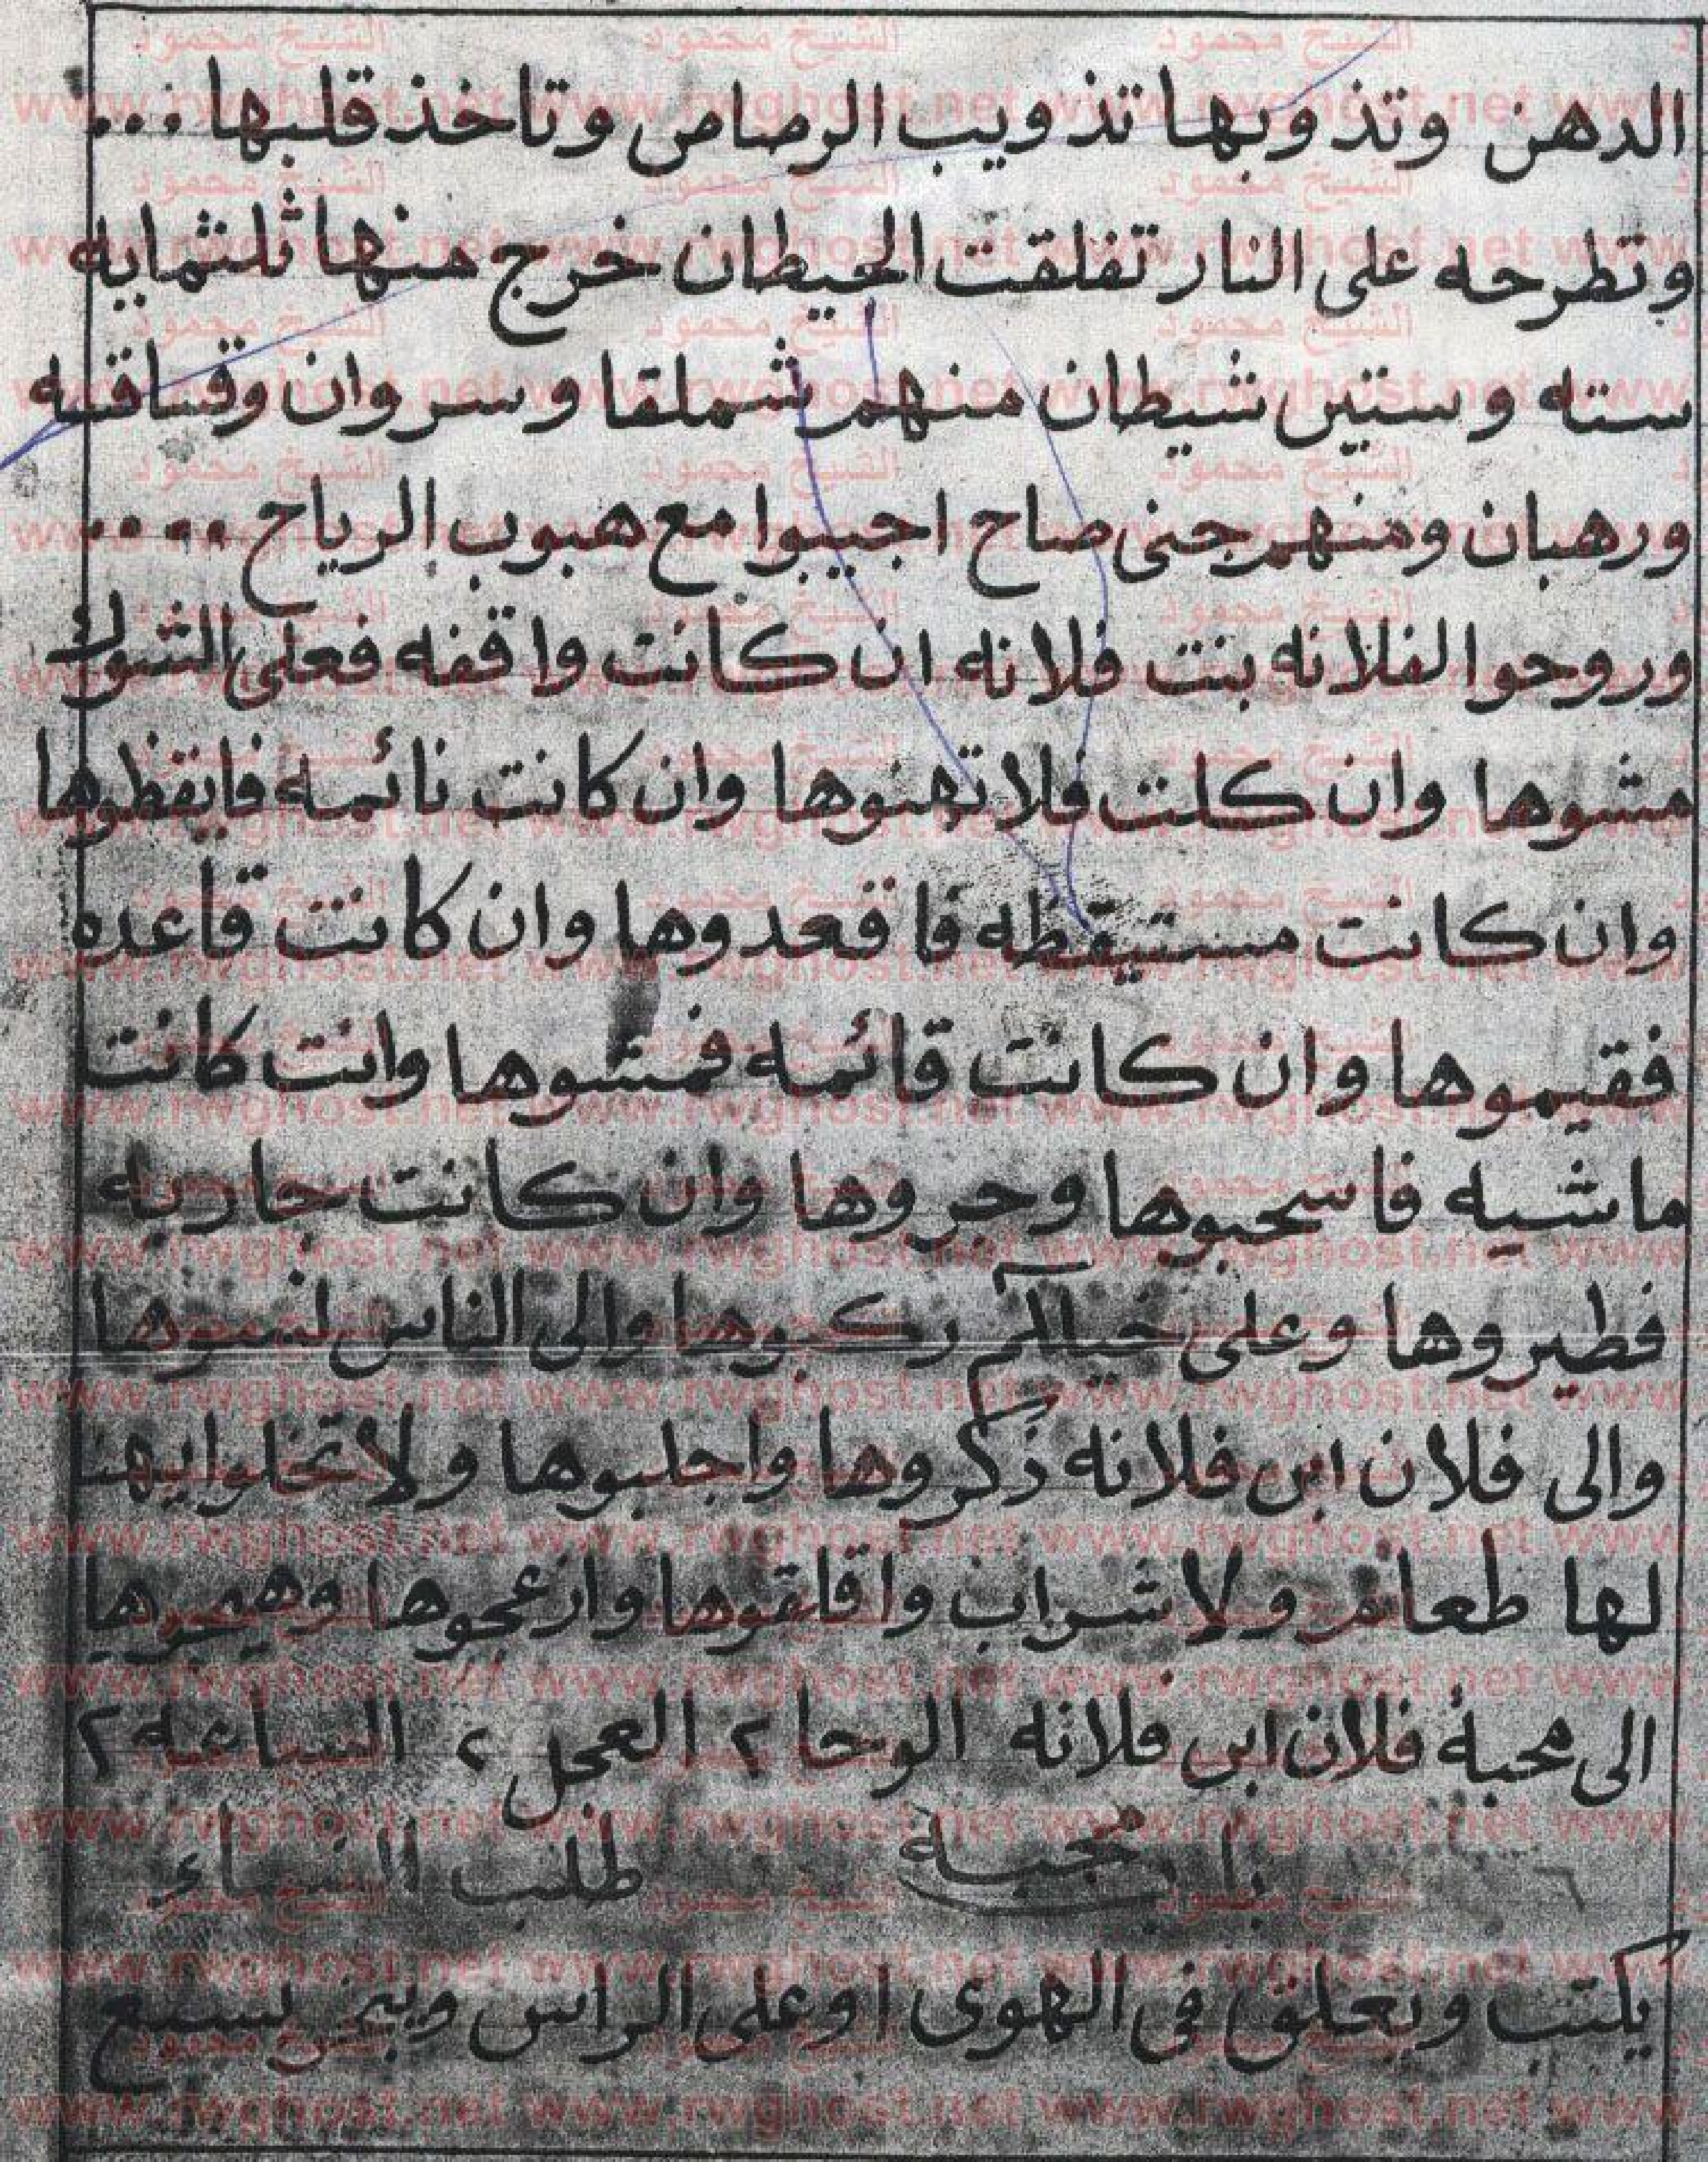 الدهن وتذوبها تذويب الرصاص وتاخذ قلبها...
وتطرحه على النار تفلقت الحيطان خرج منها ثلثمايه
سته وستين شيطان منهم شملقا وسروان وقساقسه
ورهبان ومنهم جنى صاح اجيبوا مع هبوب الرياح ....
وروحوا لفلانه بنت فلانه ان كانت واقفه فعلى الشوك
مشوها وان كلت فلا تهنوها وان كانت نائمه فايقظوها
وان كانت مستيقظه فاقعدوها وان كانت قاعده
فقيموها وان كانت قائمه فمشوها وانت كانت
ماشيه فاسحبوها وجروها وان كانت جاريه
فطيروها وعلى خيلكم ركبوها والى الناس نسوها
والى فلان ابن فلانه ذكروها واجلبوها ولا تخلوا يهنا
لها طعام ولا شراب واقلقوها وازعجوها وهيجوها
الى محبة فلان ابن فلانه الوحا ٢ العجل ٢ الساعه ٢
٦ با محبه طلب النساء
يكتب ويعلق فى الهوى او على الراس ويبخر بسبع
الشيخ محمود
www.rwghost.net